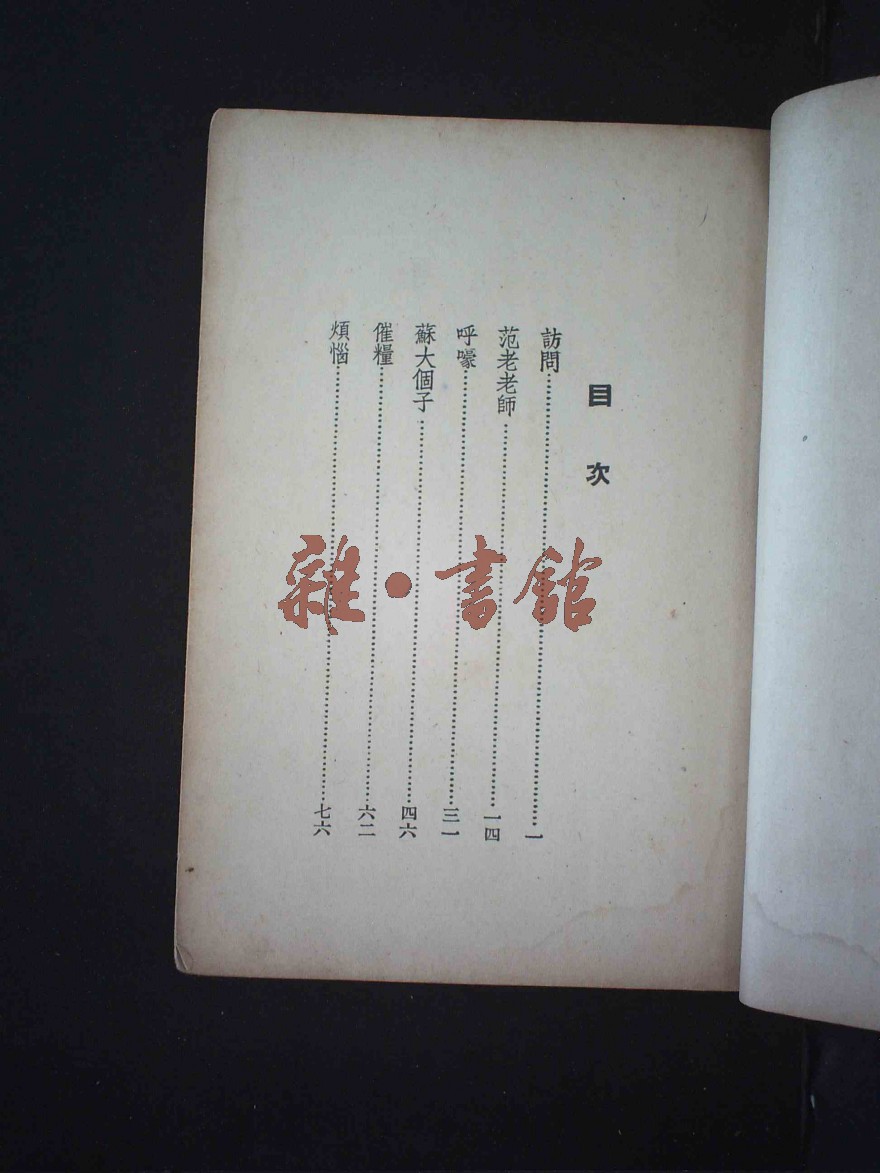 目次
訪問……一
范老老師……一四
呼嚎……三一
蘇大個子……四六
催糧……六二
煩惱……七六
雜·書館